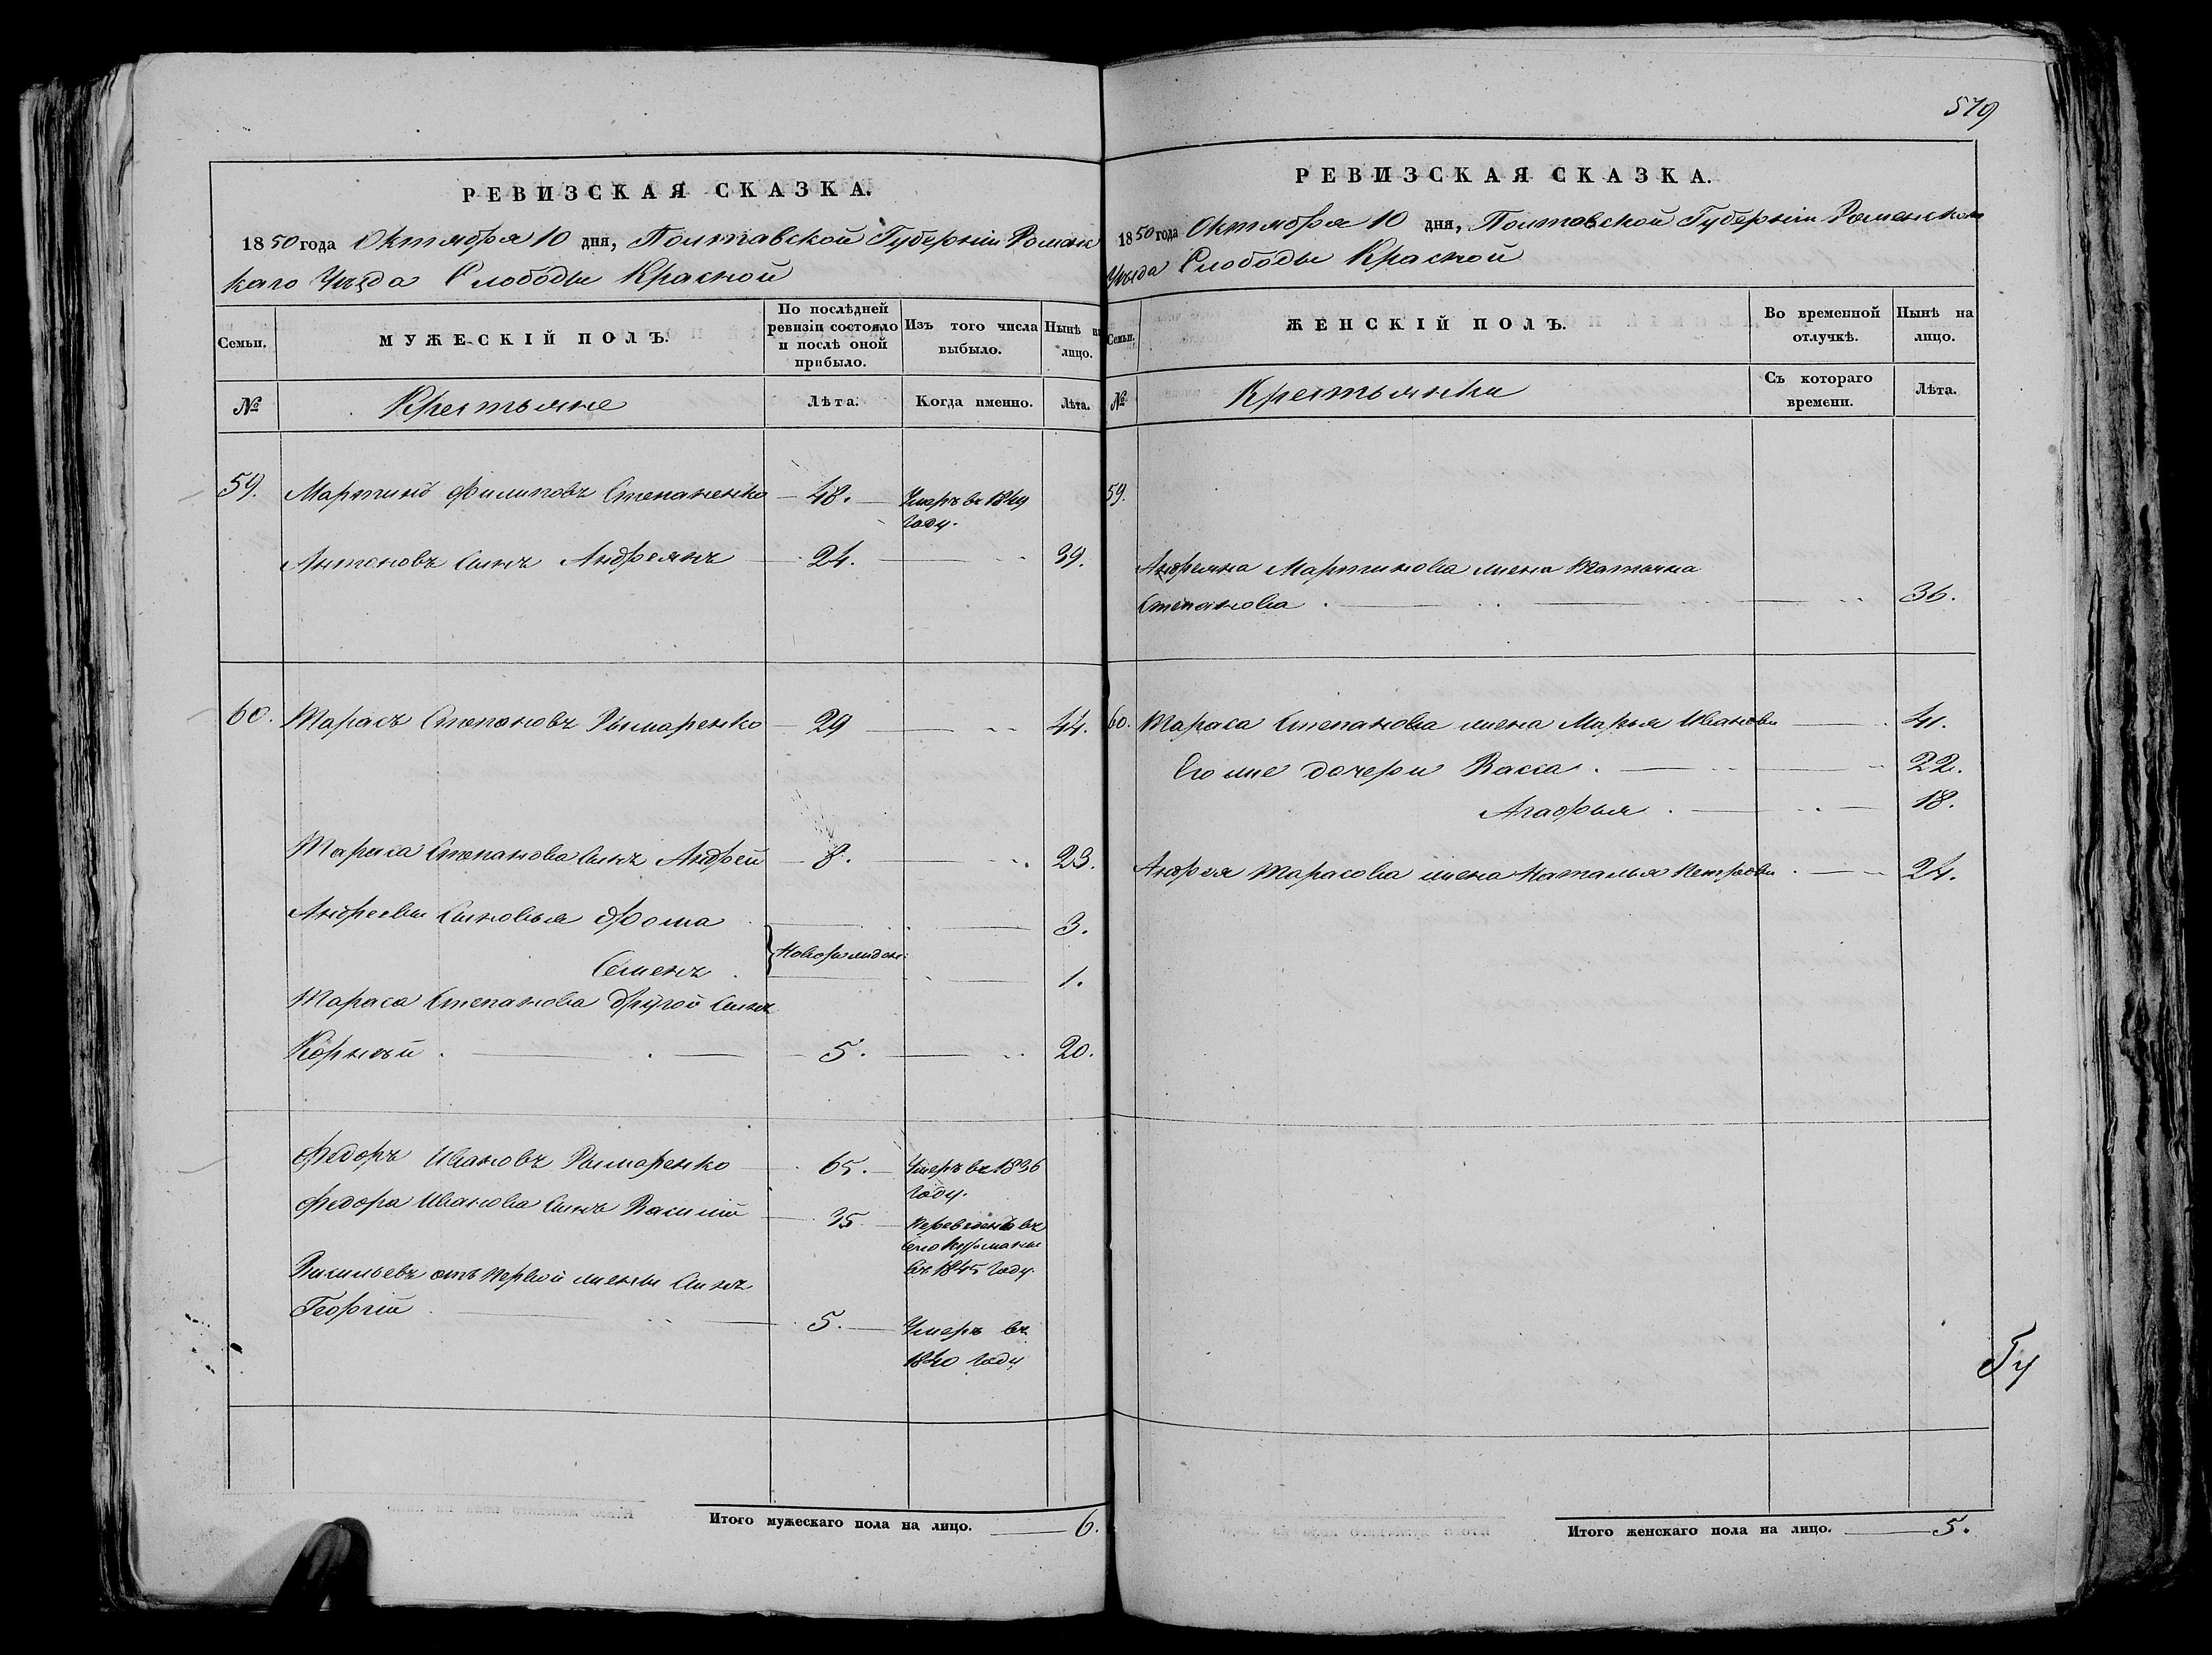 РЕВИЗСКАЯ СКАЗКА.
1850 года Октября 10 дня, Полтавской Губерніи Роменс
каго Уѣзда Слободы Красной
Семьи.
МУЖЕСКІЙ ПОЛЪ.
По послѣдней ревизіи состояло и послѣ оной прибыло.
Изъ того числа выбыло.
Нынѣ на лицо.
№
Крестьяне
Лѣта.
Когда именно.
Лѣта.
59. Мартинъ Филиповъ Степаненко 48. Умеръ въ 1849
году.
Антоновъ сынъ Андреянъ 24. 39.
60. Тарасъ Степановъ Рымаренко 29 44.
Тараса Степанова сынъ Андрей 8. 23.
Андреевы сыновья Фома 3.
Новорожден:
Семенъ 1.
Тараса Степанова другой сынъ
Корнѣй 5. 20.
Федоръ Ивановъ Рымаренко 65. Умеръ въ 1836
году.
Федора Иванова сынъ Василій 35. Переведенъ въ
село
въ 1845 году.
Васильевъ отъ первой жены сынъ
Георгій 5. Умеръ въ
1840 году
Итого мужескаго пола на лицо. 6.
579
РЕВИЗСКАЯ СКАЗКА.
1850 года Октября 10 дня, Полтавской Губерніи Роменскаго
Уѣзда Слободы Красной
Семьи.
ЖЕНСКІЙ ПОЛЪ.
Во временной отлучкѣ.
Нынѣ на лицо.
№
Крестьянки
Съ котораго времени.
Лѣта.
59.
Андреяна Мартинова жена Татьяна
Степанова 36.
60. Тараса Степанова жена Марья Иванова 41.
Его же дочери Васса 22.
Агафья 18.
Андрея Тарасова жена Наталья Петрова 24.
Итого женскаго пола на лицо. 5.